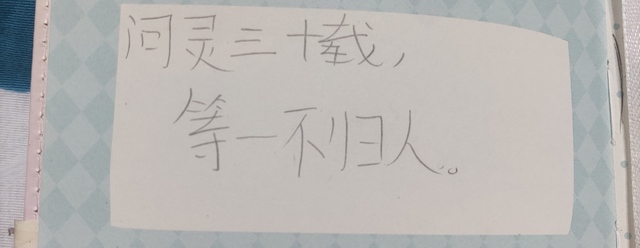 问灵三十载，
等一不归人。